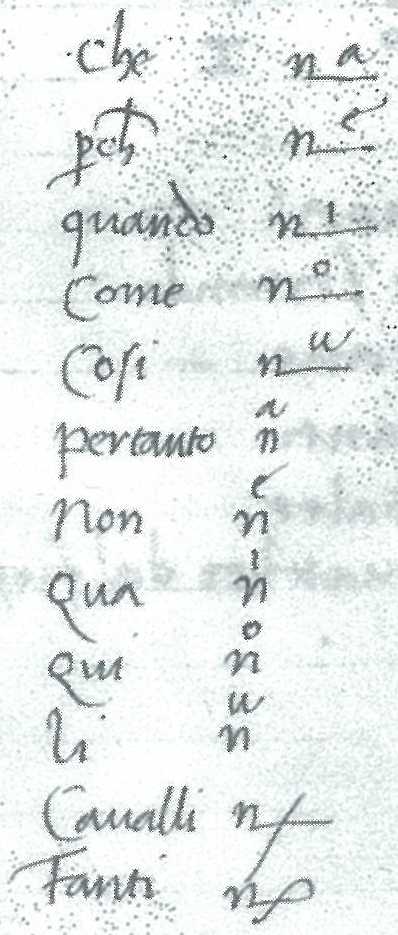 Che na
pch ne
quando ni
Come no
Cosi nu
pertanto na
Non ne
Qua ni
Qui no
Li nu
Caualli n
Fanti n